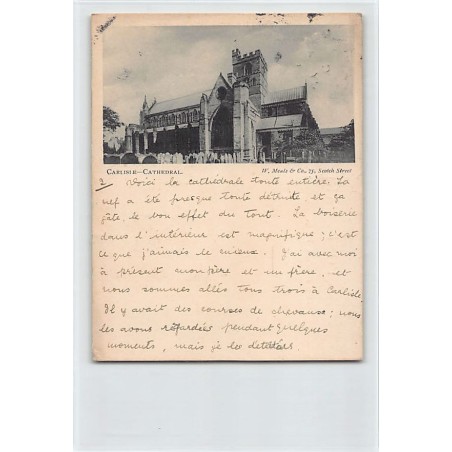 CARLISLE—CATHEDRAL.
W. Meals & Co., 75, Scotch Street
2 Voici la cathédrale toute entière. La
nef a été presque toute détruite et ça
gâte le bon effet du tout. La boiserie
dans l'intérieur est magnifique; c'est
ce que j'aimais le mieux. J'ai avec moi
à présent mon père et un frère, et
nous sommes allés tous trois à Carlisle.
Il y avait des courses de chevaux; nous
les avons regardées pendant quelques
moments, mais je les détestais.